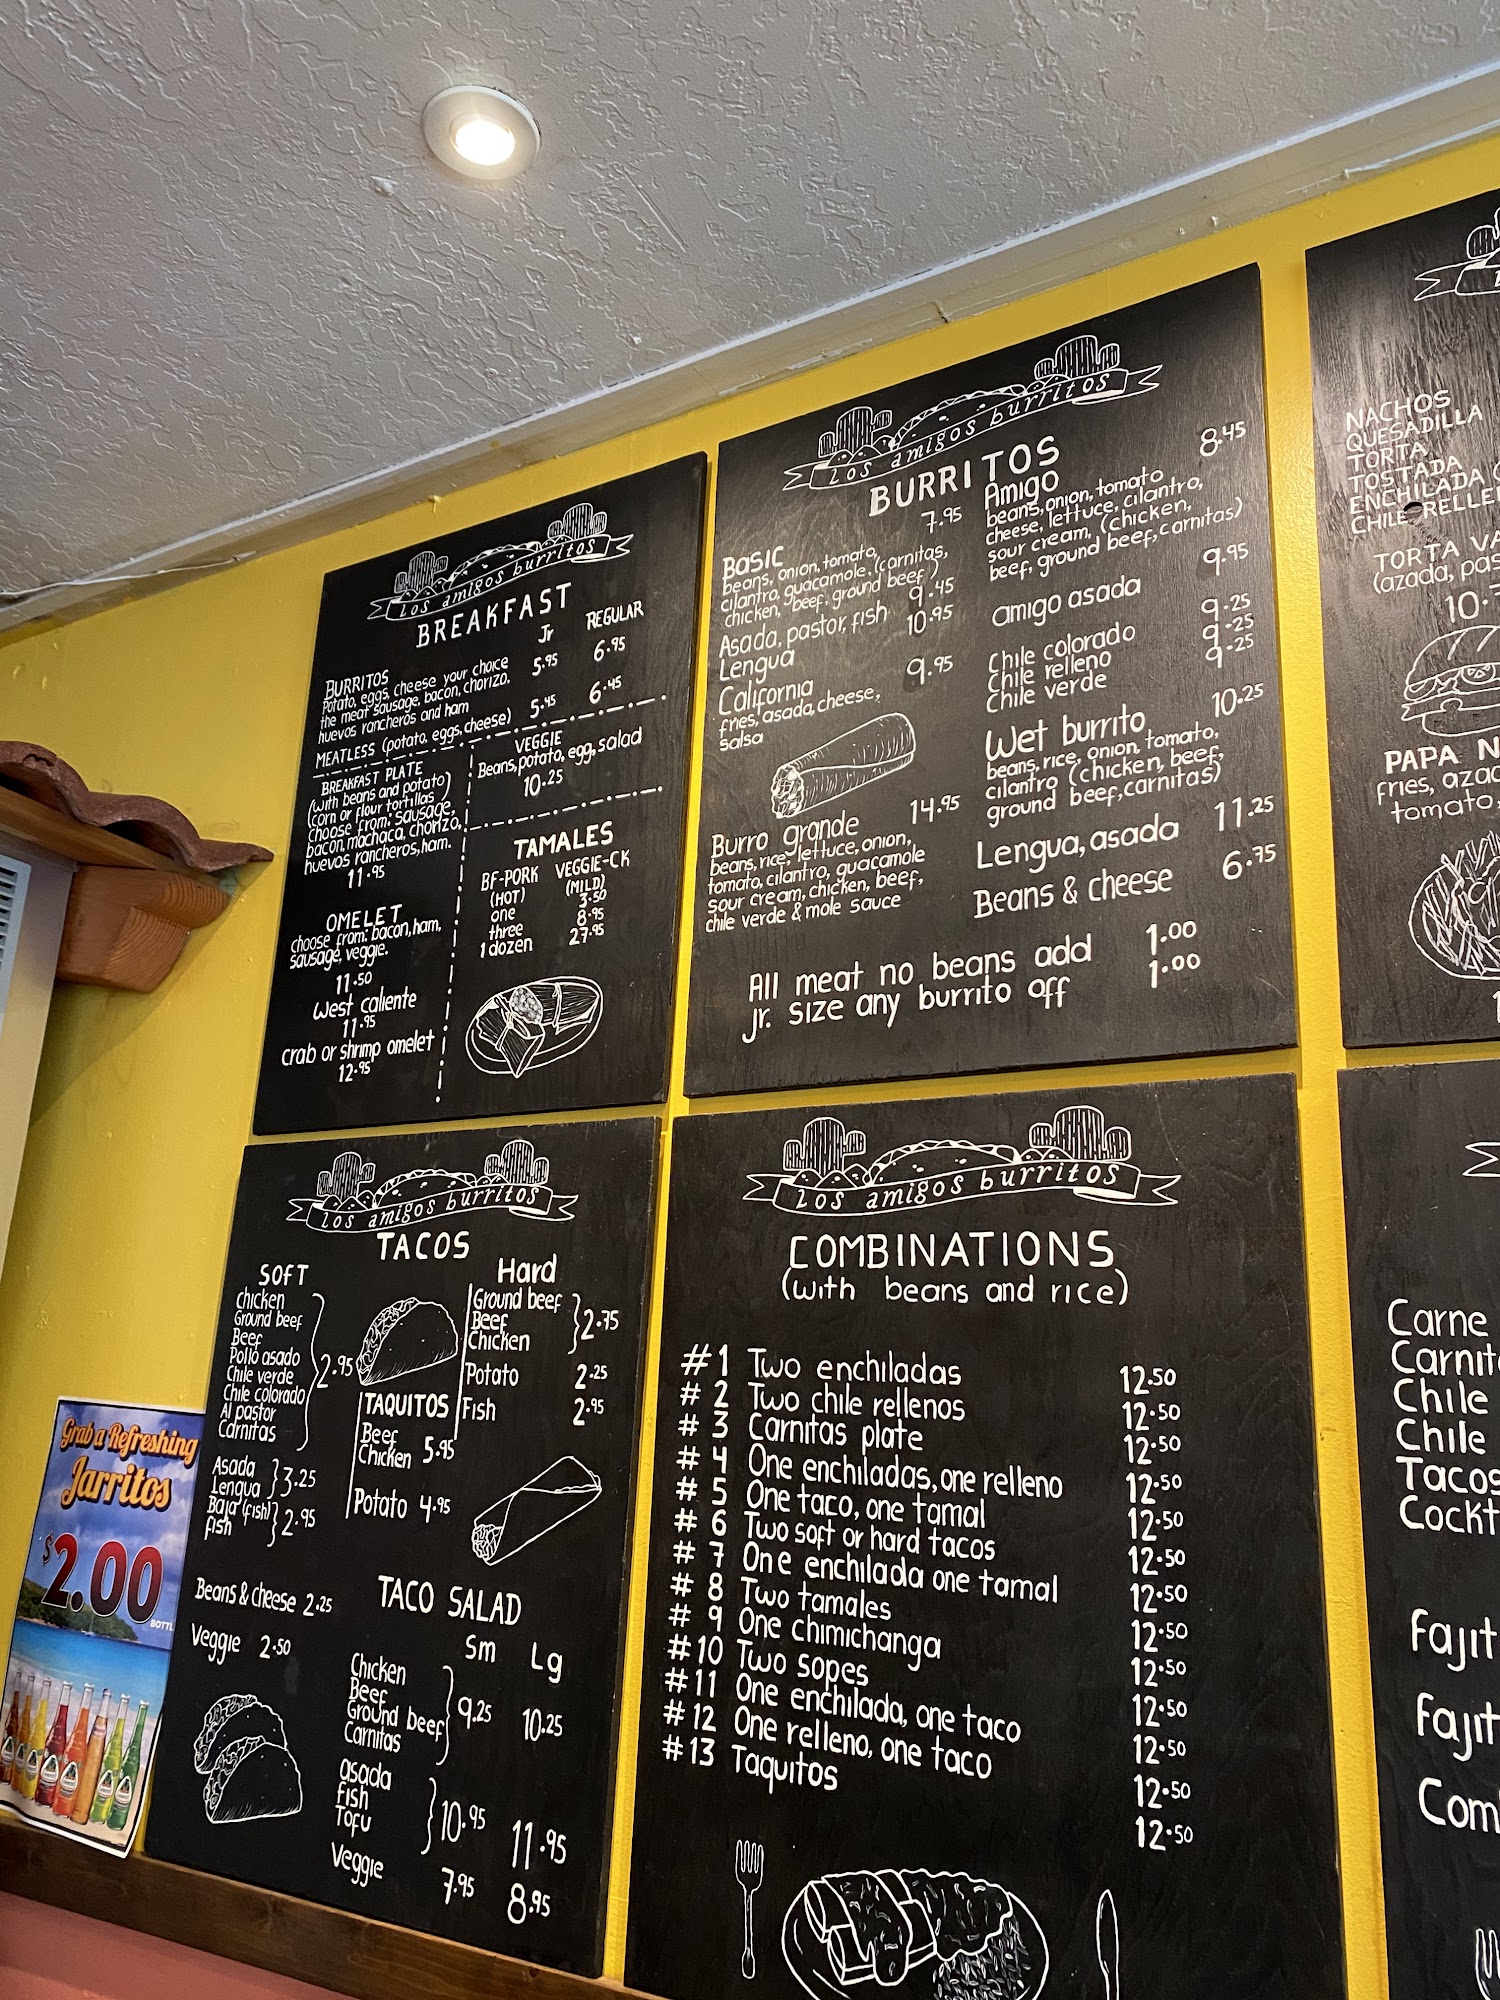 Los amigos burritos
BREAKFAST
Jr REGULAR
BURRITOS 5.95 6.95
Potato, eggs, cheese your choice
the meat sausage, bacon, chorizo,
huevos rancheros and ham
MEATLESS (potato, eggs, cheese) 5.45 6.45
BREAKFAST PLATE
(with beans and potato)
(corn or flour tortillas)
Choose from: sausage,
bacon, machaca, chorizo,
huevos rancheros, ham.
11.95
OMELET
choose from: bacon, ham,
sausage, veggie.
11.50
West caliente
11.95
crab or shrimp omelet
12.95
VEGGIE
Beans, potato, egg, salad
10.25
TAMALES
BF-PORK VEGGIE-CK
(HOT) (MILD)
one 3.50
three 8.95
1 dozen 27.95
Los amigos burritos
BURRITOS
BASIC 7.95
beans, onion, tomato,
cilantro, guacamole, (carnitas,
chicken, beef, ground beef)
Asada, pastor, fish 9.45
Lengua 10.95
California 9.95
fries, asada, cheese,
salsa
Burro grande 14.95
beans, rice, lettuce, onion,
tomato, cilantro, guacamole
sour cream, chicken, beef,
chile verde & mole sauce
Amigo 8.45
beans, onion, tomato
cheese, lettuce, cilantro,
sour cream, (chicken,
beef, ground beef, carnitas)
amigo asada 9.95
Chile colorado 9.25
Chile relleno 9.25
Chile verde 9.25
Wet burrito 10.25
beans, rice, onion, tomato,
cilantro (chicken, beef,
ground beef, carnitas)
Lengua, asada 11.25
Beans & cheese 6.75
All meat no beans add 1.00
Jr. size any burrito off 1.00
NACHOS
QUESADILLA
TORTA
TOSTADA
ENCHILADA
CHILE RELLE
TORTA VA
(azada, pas
10.7
PAPA N
fries, azad
tomato,
Los amigos burritos
TACOS
SOFT
Chicken
Ground beef
Beef
Pollo asado
Chile verde 2.95
Chile colorado
Al pastor
Carnitas
Asada
Lengua 3.25
Baja (fish)
fish 2.95
Beans & cheese 2.25
Veggie 2.50
Hard
Ground beef
Beef 2.75
Chicken
Potato 2.25
Fish 2.95
TAQUITOS
Beef
Chicken 5.95
Potato 4.95
TACO SALAD
Sm Lg
Chicken
Beef 9.25 10.25
Ground beef
Carnitas
asada
Fish 10.95 11.95
Tofu
Veggie 7.95 8.95
Los amigos burritos
COMBINATIONS
(with beans and rice)
#1 Two enchiladas 12.50
#2 Two chile rellenos 12.50
#3 Carnitas plate 12.50
#4 One enchiladas, one relleno 12.50
#5 One taco, one tamal 12.50
#6 Two soft or hard tacos 12.50
#7 One enchilada one tamal 12.50
#8 Two tamales 12.50
#9 One chimichanga 12.50
#10 Two sopes 12.50
#11 One enchilada, one taco 12.50
#12 One relleno, one taco 12.50
#13 Taquitos 12.50
Carne
Carnit
Chile
Chile
Tacos
Cockt
Fajit
Fajit
Com
Grab a Refreshing
Jarritos
$2.00
BOTTL